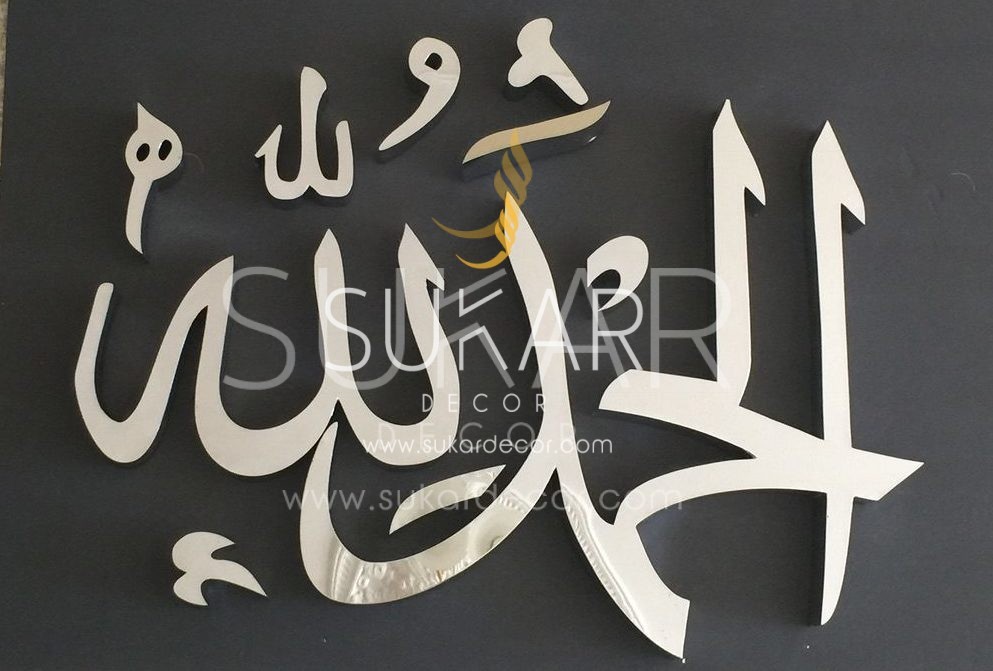 الحمد لله
SUKAR
SUKAR
DECOR
DECOR
www.sukardecor.com
www.sukardecor.com